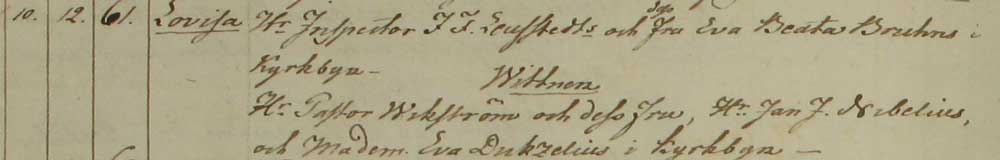 10. 12. 61. Lovisa Hr Inspector J. F. Leufstedts och dess Fru Eva Beata Bruhns i
Kyrkbyn –
Wittnen
Hr Pastor Wikström och dess Fru, Hr Jan J. Nibelius,
och Madem. Eva Dubzelius i Kyrkbyn –